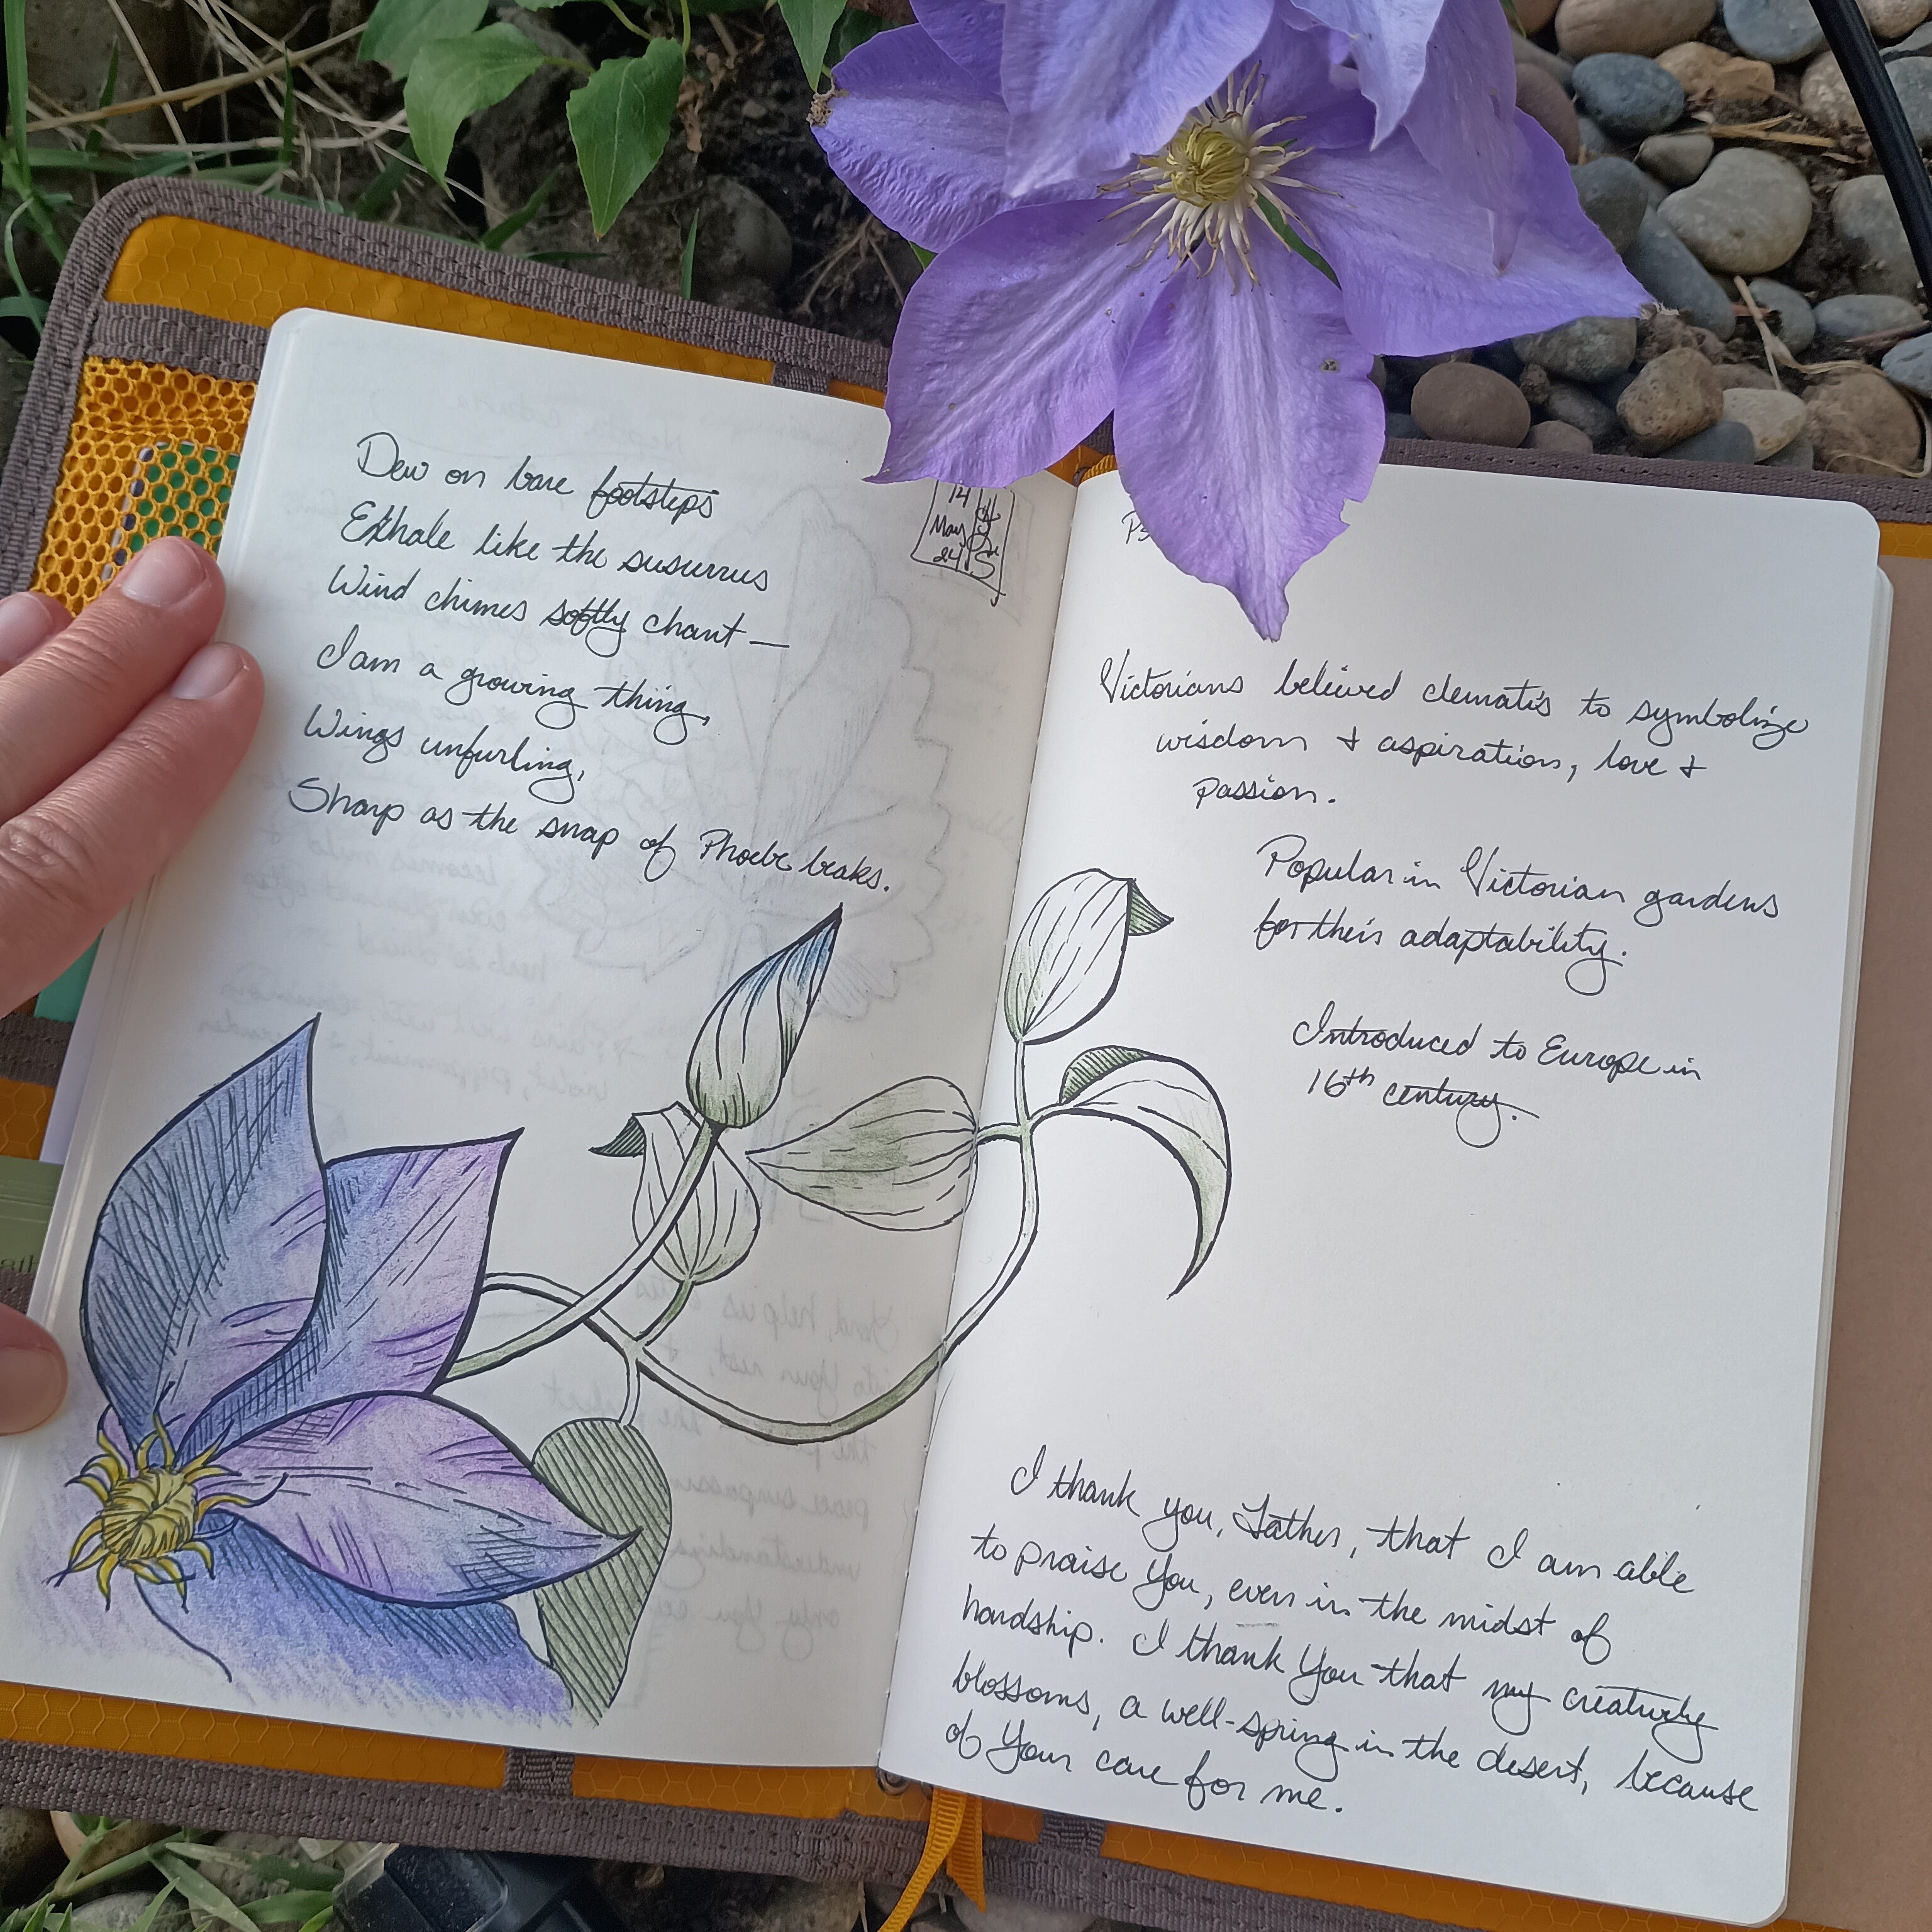 Dew on bare footsteps
Exhale like the susurrus
Wind chimes softly chant—
I am a growing thing,
Wings unfurling,
Sharp as the snap of Phoebe beaks.
14
May
24
Victorians believed clematis to symbolize
wisdom + aspiration, love +
passion.
Popular in Victorian gardens
for their adaptability.
Introduced to Europe in
16th century.
I thank you, Father, that I am able
to praise You, even in the midst of
hardship. I thank You that my creativity
blossoms, a well-spring in the desert, because
of Your care for me.